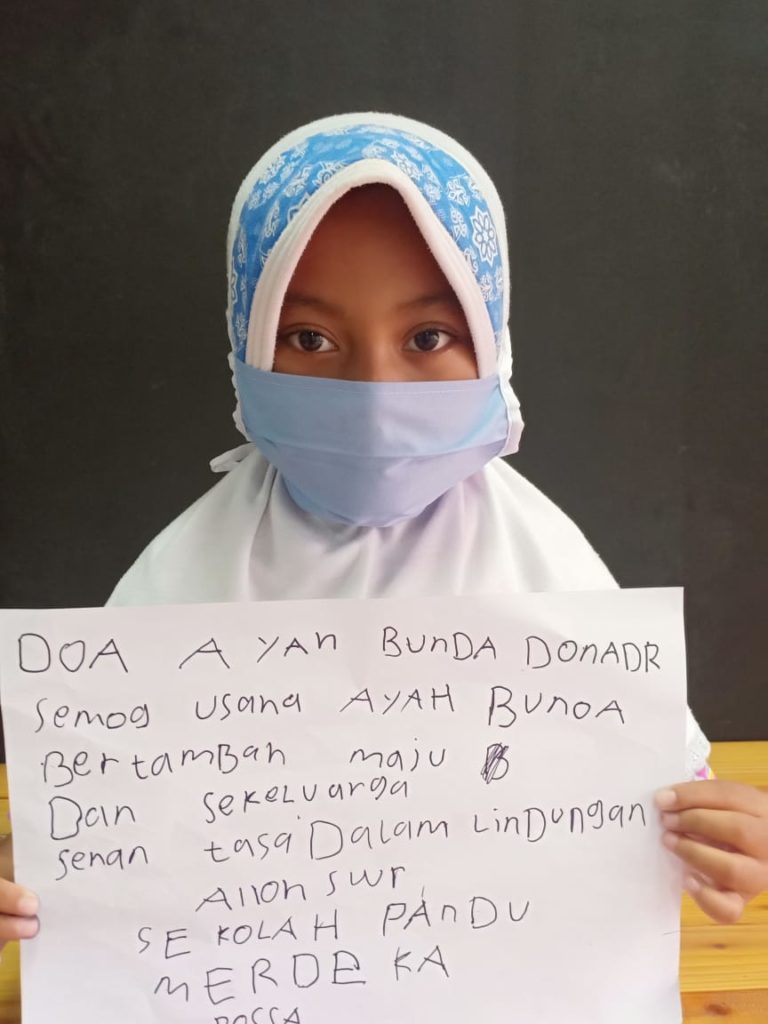 DOA AYAH BUNDA DONADR
semog usana AYAH BUNDA
Bertambah maju
Dan sekeluarga
senan tasa Dalam Lindungan
Allah swr
SEKOLAH PANDU
MERDEKA
DOSSA